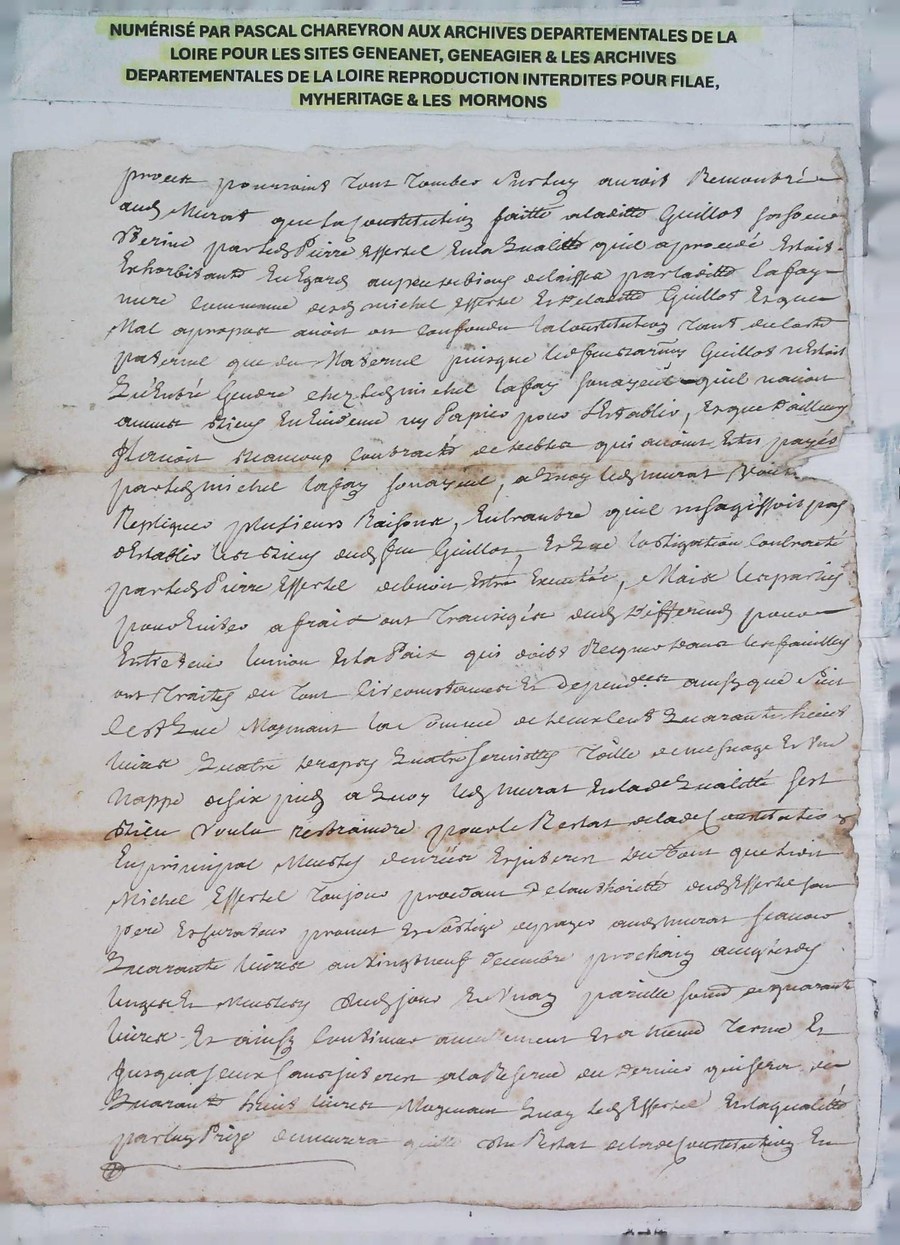 NUMÉRISÉ PAR PASCAL CHAREYRON AUX ARCHIVES DEPARTEMENTALES DE LA
LOIRE POUR LES SITES GENEANET, GENEAGIER & LES ARCHIVES
DEPARTEMENTALES DE LA LOIRE REPRODUCTION INTERDITES POUR FILAE,
MYHERITAGE & LES MORMONS
proces pourroint tout tomber sur luy auroit Remontré
aud Murat que la Constitution faitte a laditte Guillot
par led Pierre Effertel En la qualitté quil a procedé Estoit
Exhorbitante En Egard au peu de biens delaissés par laditte Lafay
mere commune dud michel Effertel Et de laditte Guillot Et que
Mal a propos avoit on confondu la Constitution tant du Costé
paternel que du Maternel puisque led feu Guillot n'Estoit
qu'Entré Gendre chez led michel lafay son ayeul quil n'avoit
aucuns biens En Evidence ny Papier pour l'Establir, Et que d'ailleurs
Il avoit beaucoup Contracté de debtes qui avoint Esté payés
par led michel lafay son ayeul, a quoy led murat
Repliquer plusieurs Raisons, Entrautre quil ne sagissoit pas
d'Establir les biens dud feu Guillot, Et que l'obligation Contracté
par led Pierre Effertel debvoit Estre Executée, Mais les parties
pour Eviter a frais ont Transigés dud differend pour
Entretenir lunion Et la Paix qui doibt Regner dans les familles
ont Traités du tout Circonstances Et dependces ainsy que suit
C'est que Moyenant la Somme de deux Cent quarante huict
livres quatre draps quatre serviettes Toille de mesnage Et une
nappe de six pieds a quoy led murat En lad qualitté s'est
bien voulu restraindre pour le Restat de lad Constitution
En principal Meubles denrées Et interest du tout que led
Michel Effertel Toujour procedant de l'authorité dud Effertel son
pere Et Curateur promet Et s'oblige de payer aud murat scavoir
quarante livres au vingt neuf decembre prochain avec lesd
linges Et Meubles dud jour En un an pareille somme de quarante
livres Et ainsy Continuer annuellement Et a mesme terme Et
Jusqua Iceux sans interest a la Reserve du dernier qui sera de
quarante huict livres Moyenant quoy led Effertel En la qualitté
par luy Prize demeurera quitte du Restat de lad Constitution En